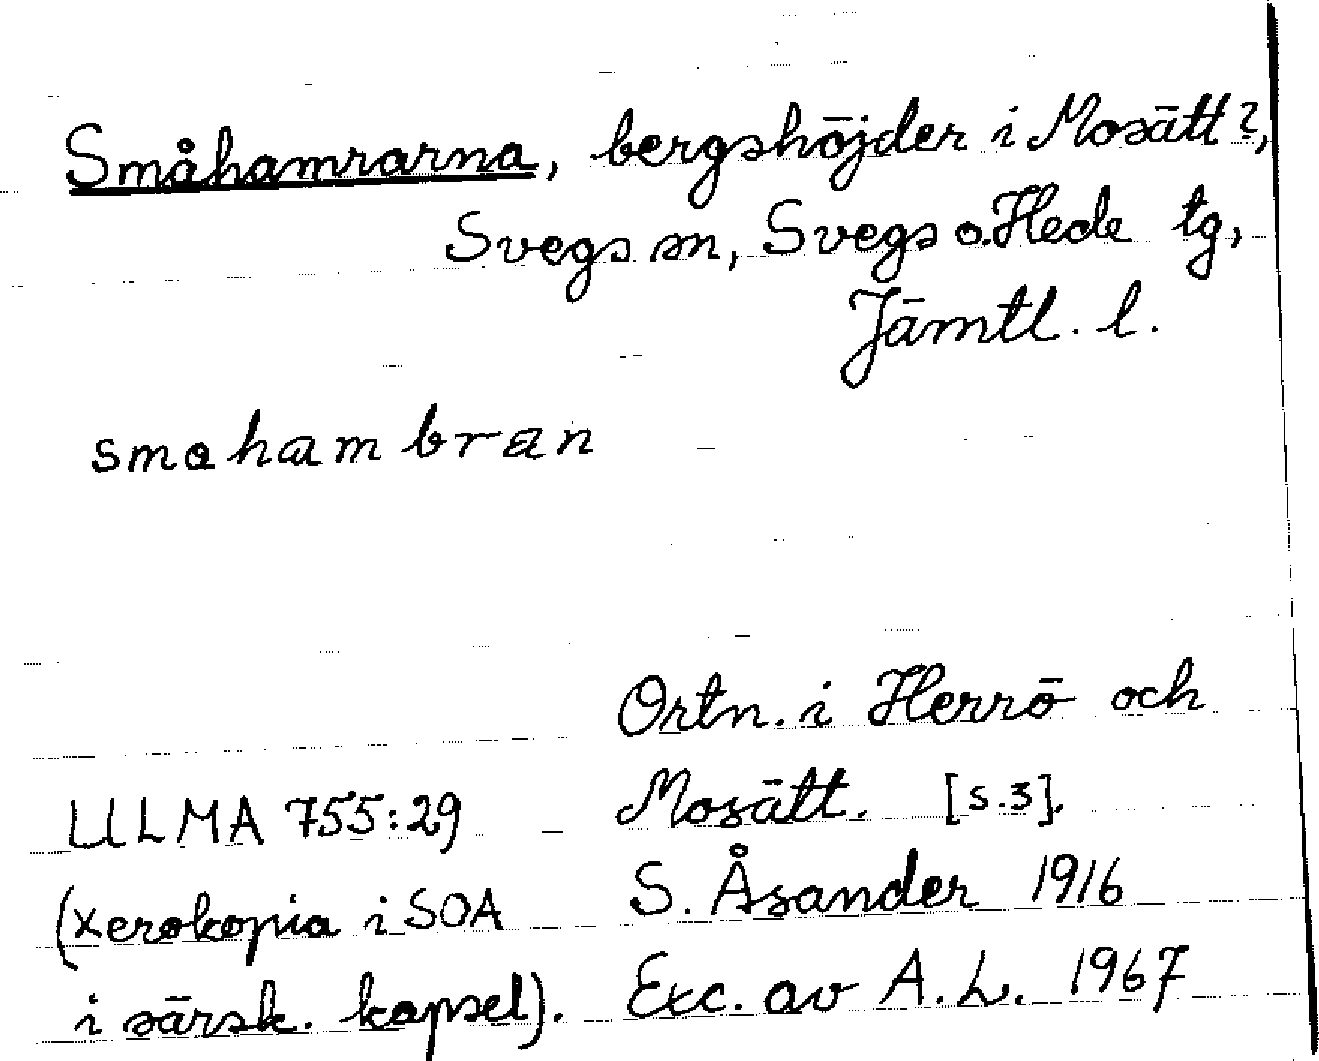 Småhamrarna, bergshöjder i Mosätt?,
Svegs sn, Svegs o. Hede tg,
Jämtl. l.
smahambran
Ortn. i Herrö och
Mosätt. [s.3].
ULMA 755:29
S. Åsander 1916
(xerokopia i SOA
Exc. av A.L. 1967
i särsk. kapsel).